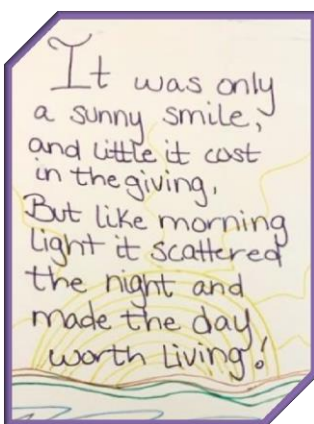 It was only
a sunny smile,
and little it cost
in the giving,
But like morning
light it scattered
the night and
made the day
worth living!